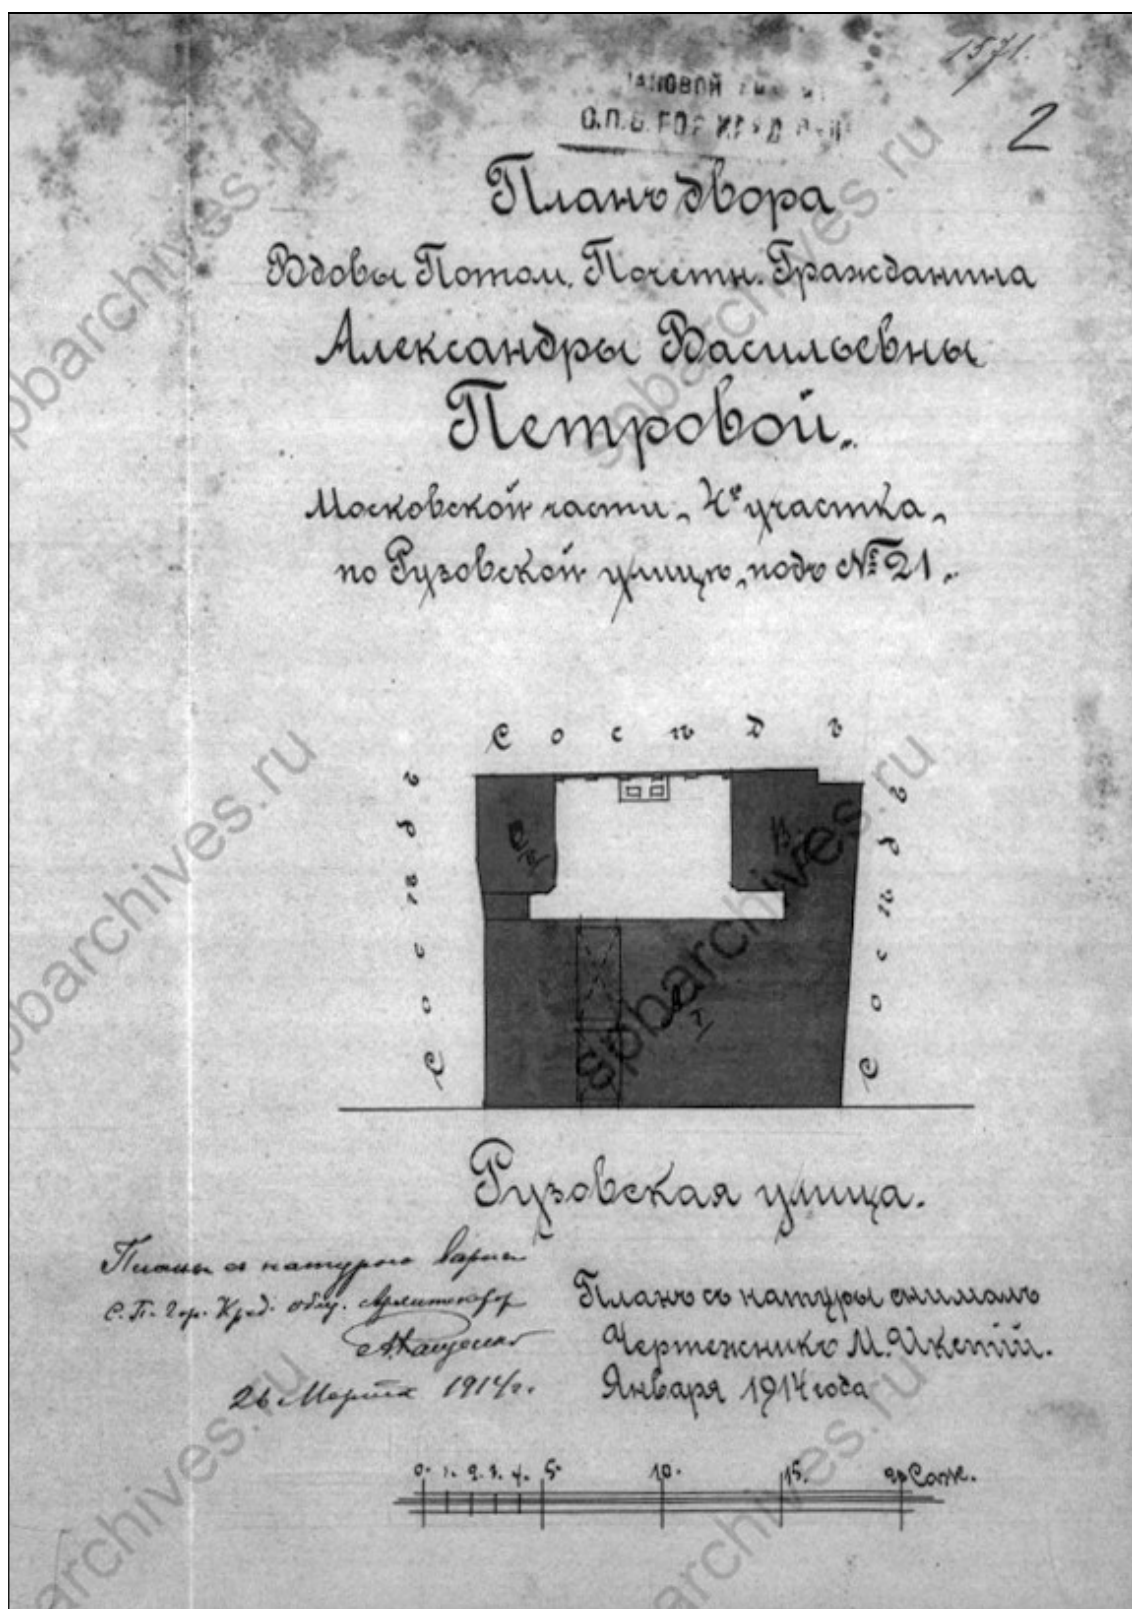 1571.
2
Планъ двора
Вдовы Потом. Почетн. Гражданина
Александры Васильевны
Петровой.
Московской части, 4го участка,
по Рузовской улицѣ, подъ № 21.
Сосѣдъ
Сосѣдъ
Сосѣдъ
Рузовская улица.
съ натурою
С.П. Гор. Кред. общ. Архитекторъ
26 Марта 1914 г.
Планъ съ натуры снималъ
Чертежникъ М.
Января 1914 года
0. 1. 2. 3. 4. 5. 10. 15. 20 Саж.
spbarchives.ru